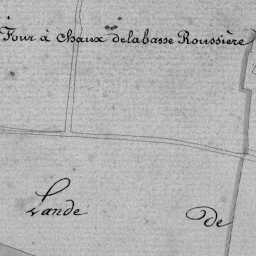 Four à Chaux delabasse Roussière
Lande de